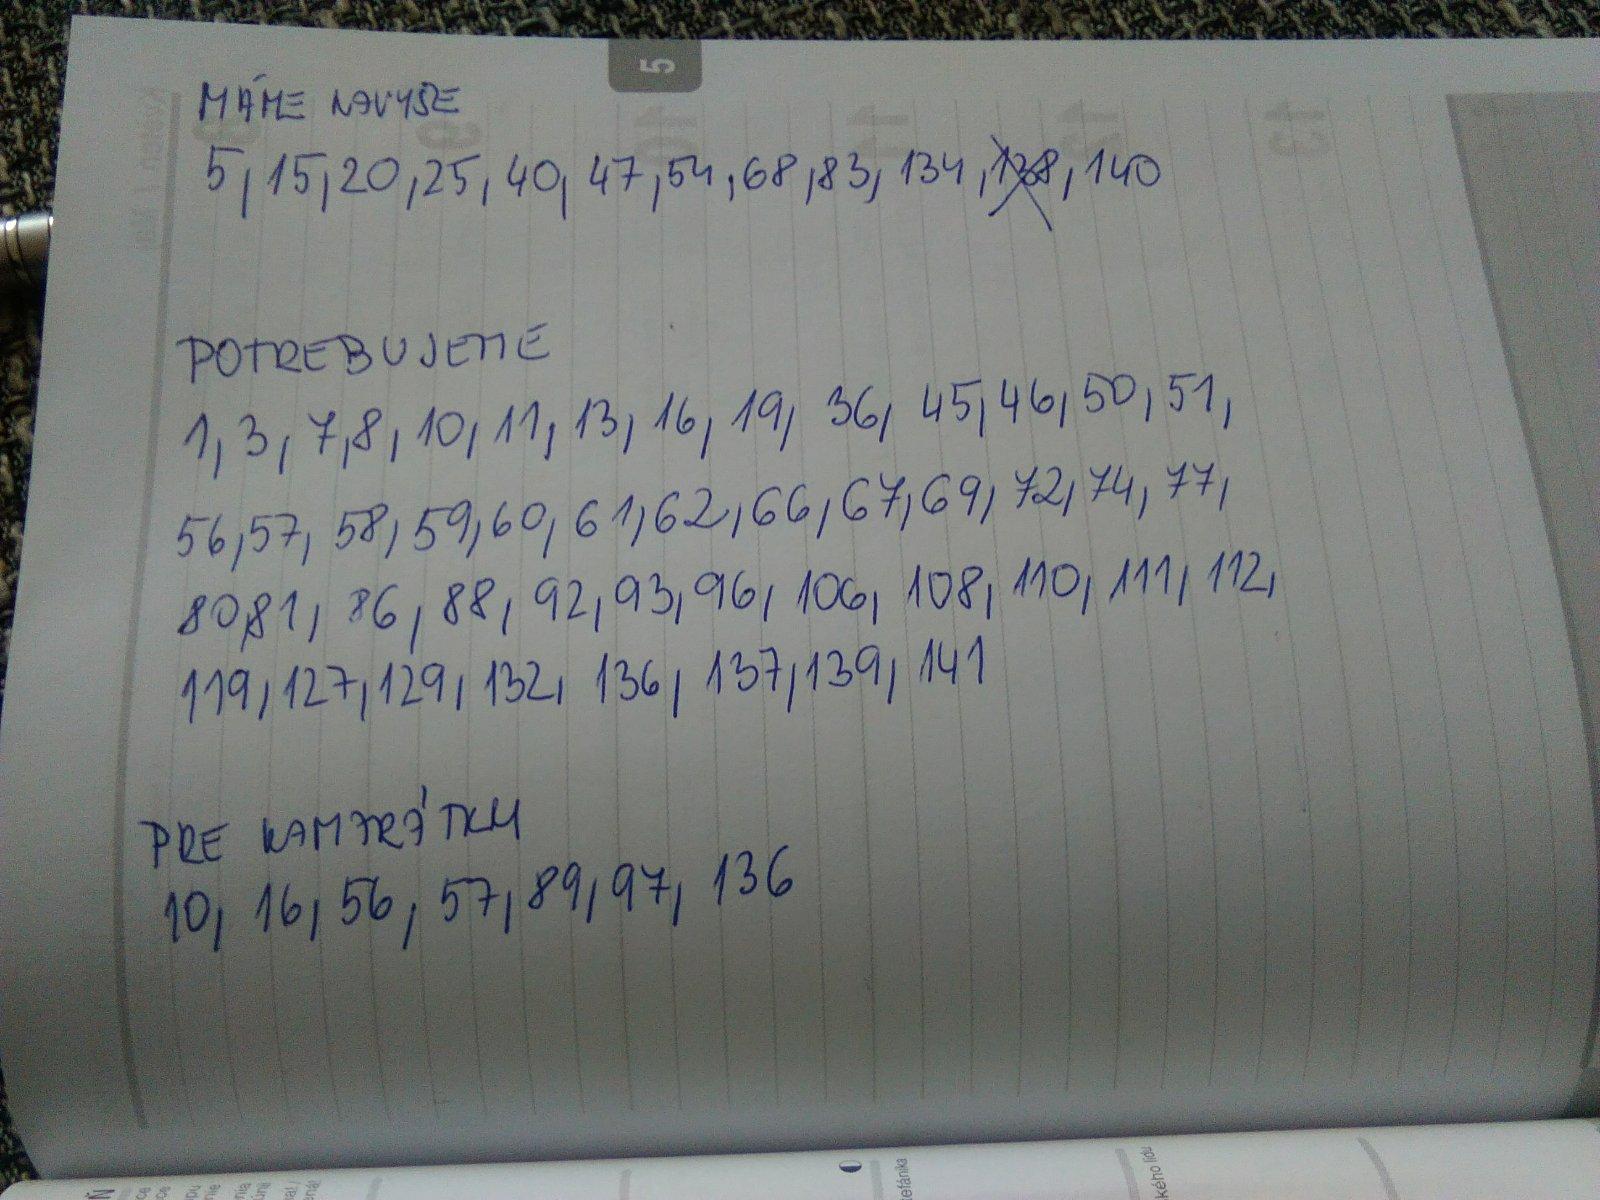 5
MÁME NAVYŠE
5, 15, 20, 25, 40, 47, 54, 68, 83, 134, 138, 140
POTREBUJEME
1, 3, 7, 8, 10, 11, 13, 16, 19, 36, 45, 46, 50, 51,
56, 57, 58, 59, 60, 61, 62, 66, 67, 69, 72, 74, 77,
80, 81, 86, 88, 92, 93, 96, 106, 108, 110, 111, 112,
119, 127, 129, 132, 136, 137, 139, 141
PRE KAMARÁTKU
10, 16, 56, 57, 89, 97, 136